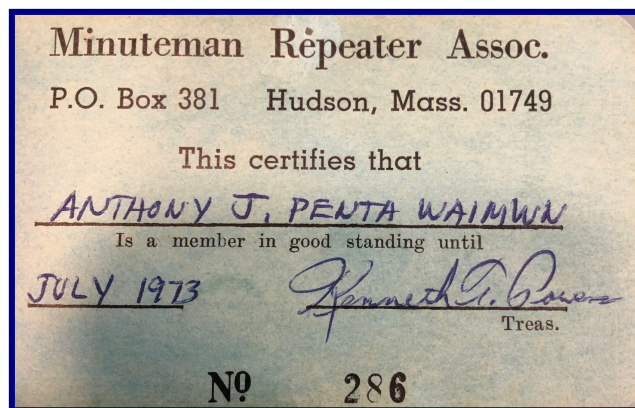 Minuteman Repeater Assoc.
P.O. Box 381 Hudson, Mass. 01749
This certifies that
ANTHONY J. PENTA WA1MWN
Is a member in good standing until
JULY 1973 Kenneth T.
Treas.
Nº 286